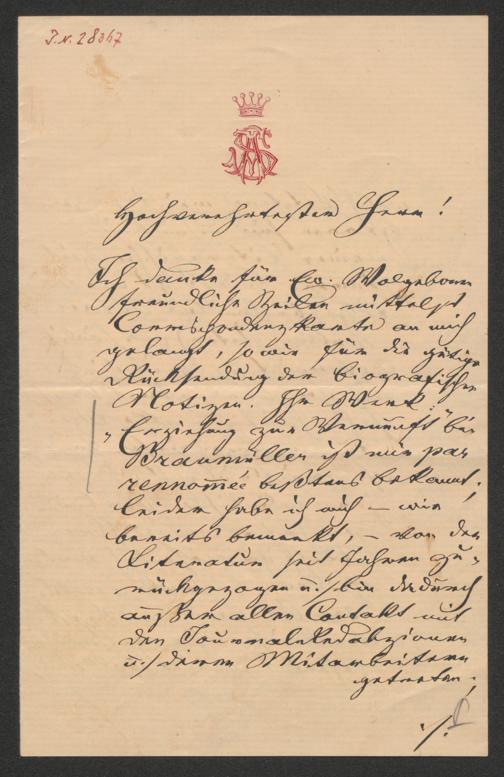 J. N. 28367
Hochverehrtester Herr!
Ich danke für Ew. Wolgeboren
freundliche Zeilen mittelst
Correspondenzkarte an mich
gelangt, sowie für die gütige
Rücksendung der biografischen
Notizen. Ihr Werk:
„Erziehung zur Vernunft" bei
Braumüller ist mir par
rennomee beßtens bekannt;
leider habe ich mich – wie
bereits bemerkt, – von der
Literatur seit Jahren zu-
rückgezogen u. bin dadurch
außer allen Contakt mit
den Journal-Redakzionen
u. deren Mitarbeitern
getreten;
./.